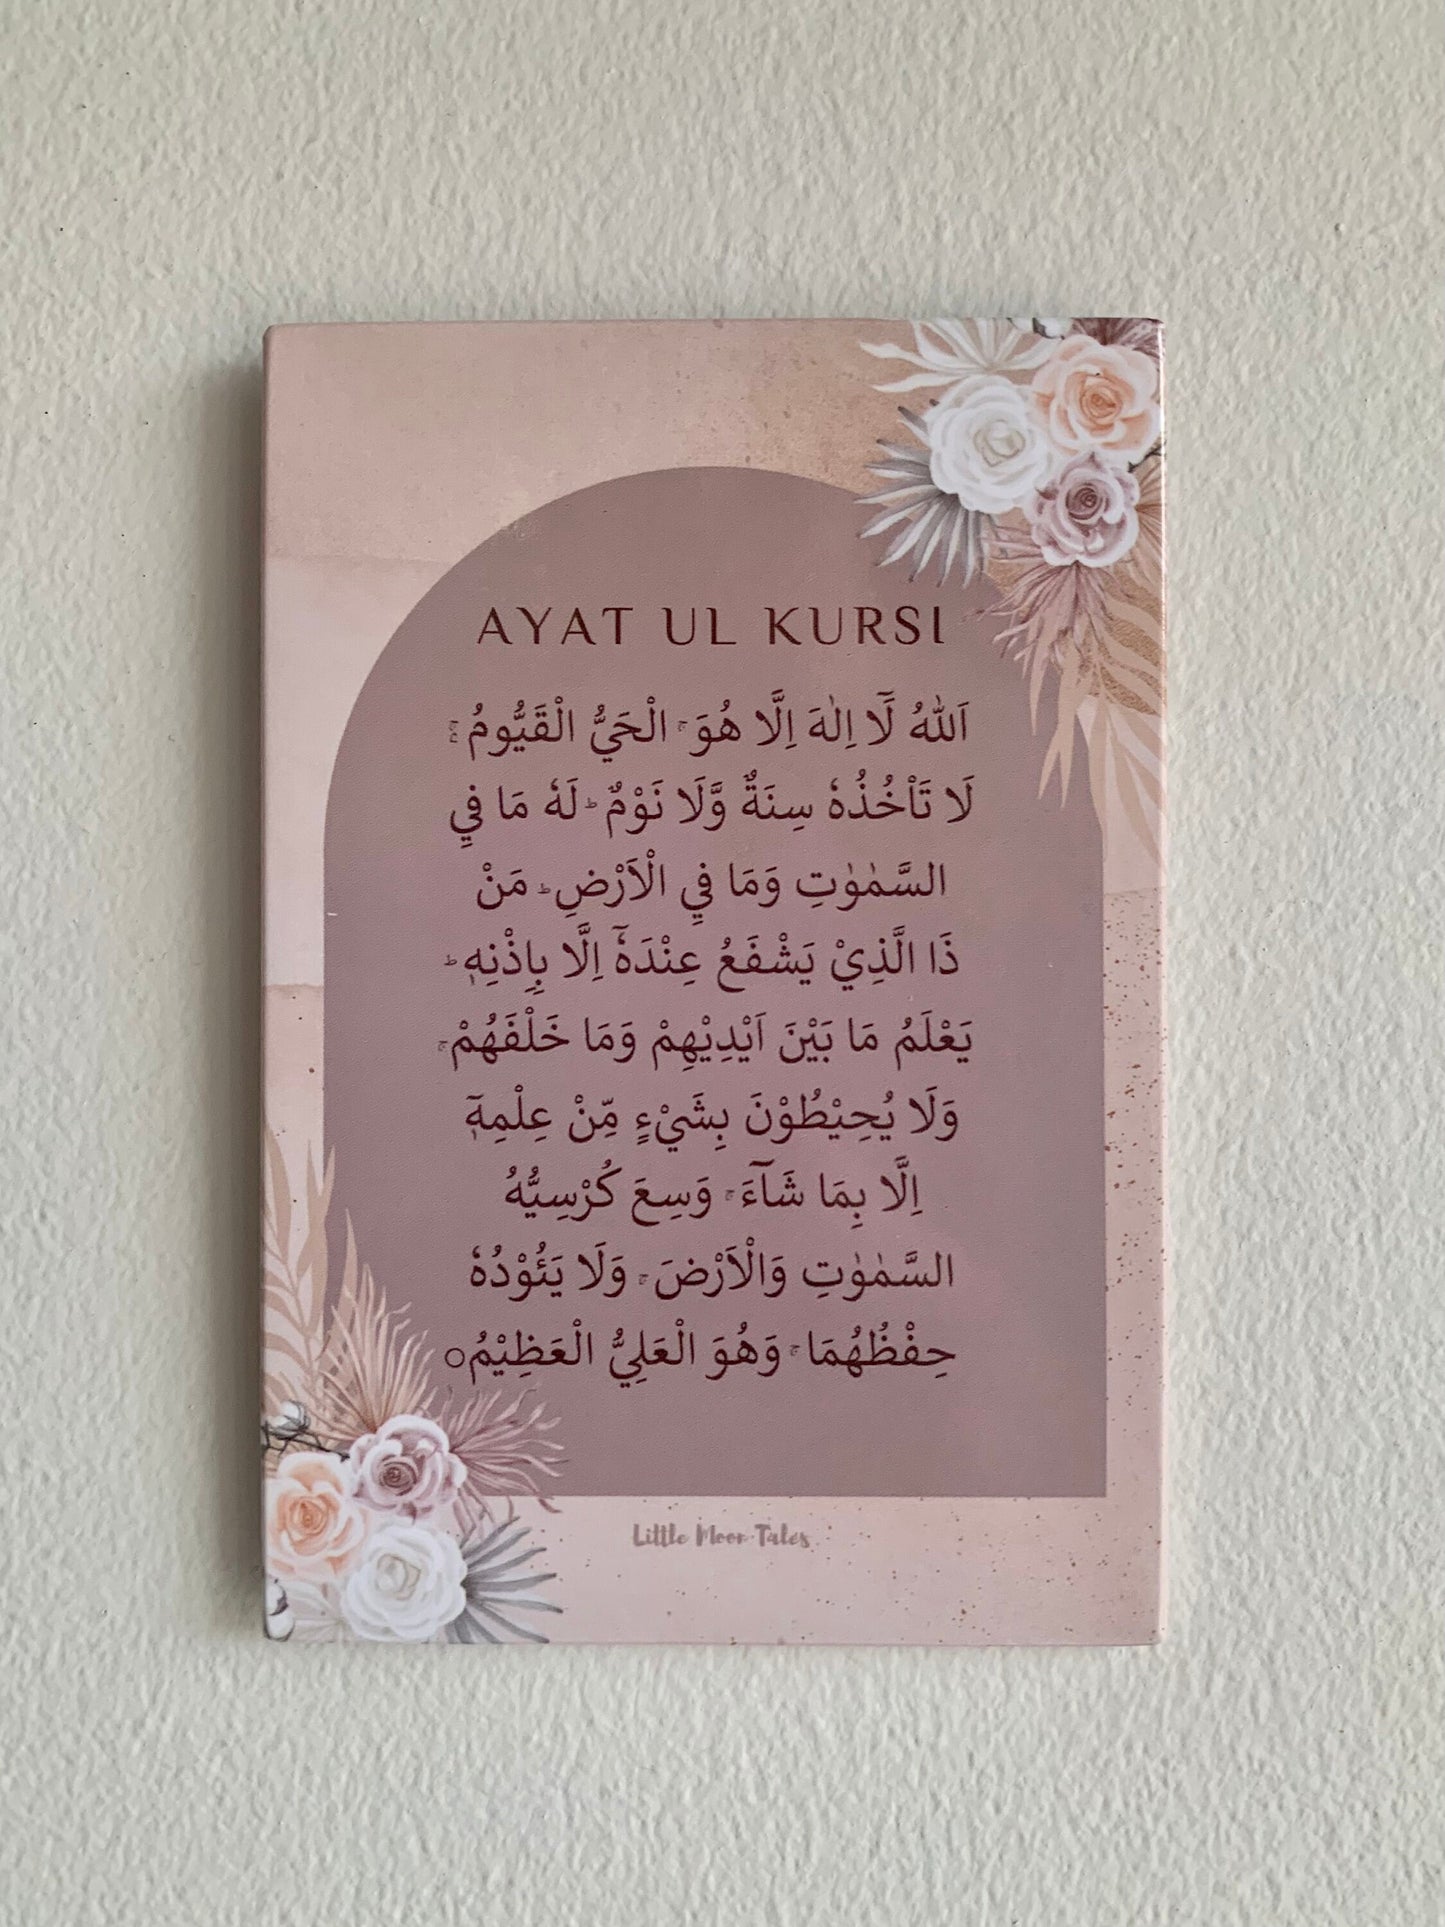 AYAT UL KURSI
اَللّٰهُ لَآ اِلٰهَ اِلَّا هُوَ ۚ الْحَيُّ الْقَيُّومُ ۚ
لَا تَاْخُذُهٗ سِنَةٌ وَّلَا نَوْمٌ ؕ لَهٗ مَا فِي
السَّمٰوٰتِ وَمَا فِي الْاَرْضِ ؕ مَنْ
ذَا الَّذِيْ يَشْفَعُ عِنْدَهٗٓ اِلَّا بِاِذْنِهٖ ؕ
يَعْلَمُ مَا بَيْنَ اَيْدِيْهِمْ وَمَا خَلْفَهُمْ ۚ
وَلَا يُحِيْطُوْنَ بِشَيْءٍ مِّنْ عِلْمِهٖٓ
اِلَّا بِمَا شَآءَ ۚ وَسِعَ كُرْسِيُّهُ
السَّمٰوٰتِ وَالْاَرْضَ ۚ وَلَا يَئُوْدُهٗ
حِفْظُهُمَا ۚ وَهُوَ الْعَلِيُّ الْعَظِيْمُ○
Little Moon Tales